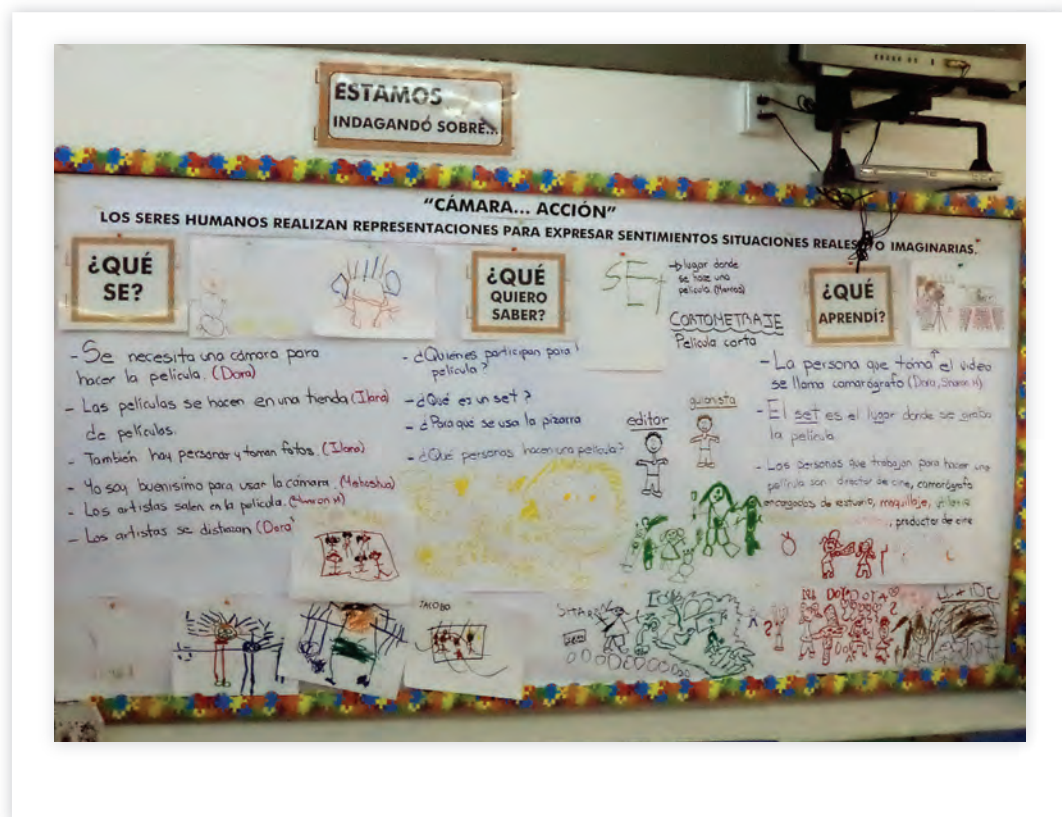 ESTAMOS
INDAGANDO SOBRE...
"CÁMARA... ACCIÓN"
LOS SERES HUMANOS REALIZAN REPRESENTACIONES PARA EXPRESAR SENTIMIENTOS SITUACIONES REALES O IMAGINARIAS.
¿QUÉ
SE?
- Se necesita una cámara para
hacer la película. (Dora)
- Las películas se hacen en una tienda (Ilana)
de películas.
- También hay personas y toman fotos. (Ilana)
- Yo soy buenísimo para usar la cámara. (Yehoshua)
- Los artistas salen en la película. (Sharon M)
- Los artistas se disfrazan (Dora)
JACOBO
¿QUÉ
QUIERO
SABER?
- ¿Quiénes participan para
película?
- ¿Qué es un set?
- ¿Para qué se usa la pizarra
- ¿Qué personas hacen una película?
SEt
lugar donde
se hace una
película. (Marcos)
CORTOMETRAJE
Película corta
editor
guionista
¿QUÉ
APRENDÍ?
- La persona que toma el video
se llama camarógrafo (Dora, Sharon M)
- El set es el lugar donde se graba
la película.
- Las personas que trabajan para hacer una
película son: director de cine, camarógrafo
encargados de vestuario, maquillaje,
, productor de cine